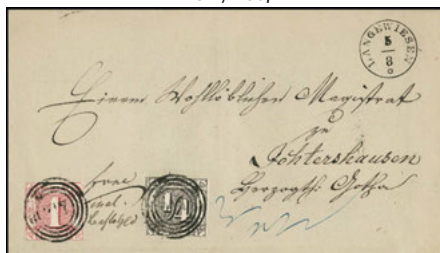 LANGEWIESEN
5
8
Einem Wohllöblichen Magistrat
zu
Ichtershausen
Herzogth. Gotha
frei
incl.
Bestellgld
1
1/4